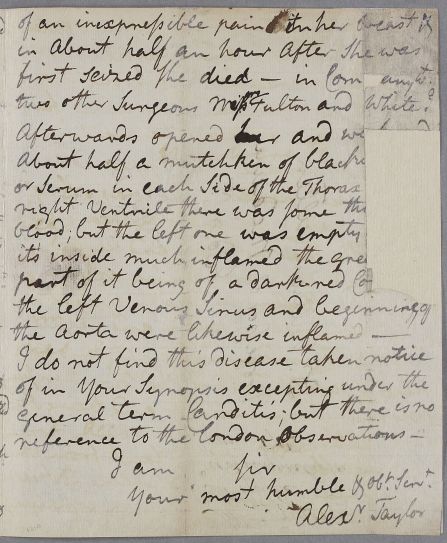 of an inexpressible pain in her breast &
in About half an hour After she was
first seized she died — in Com any wt.
two other Surgeons Messrs Fulton and White
Afterwards opened her and
About half a mutchkin of black
or Serum in each Side of the Thorax
right Ventricle there was some
blood, but the left one was empty
its inside much inflamed the
part of it being of a darkened
the left Venous Sinus and beginning of
the Aorta were likewise inflamed —
I do not find this disease taken notice
of in Your Synopsis excepting under the
general term Carditis; but there is no
reference to the London Observations —
I am Sir
Your most humble & Obt. Servt.
Alexr. Taylor